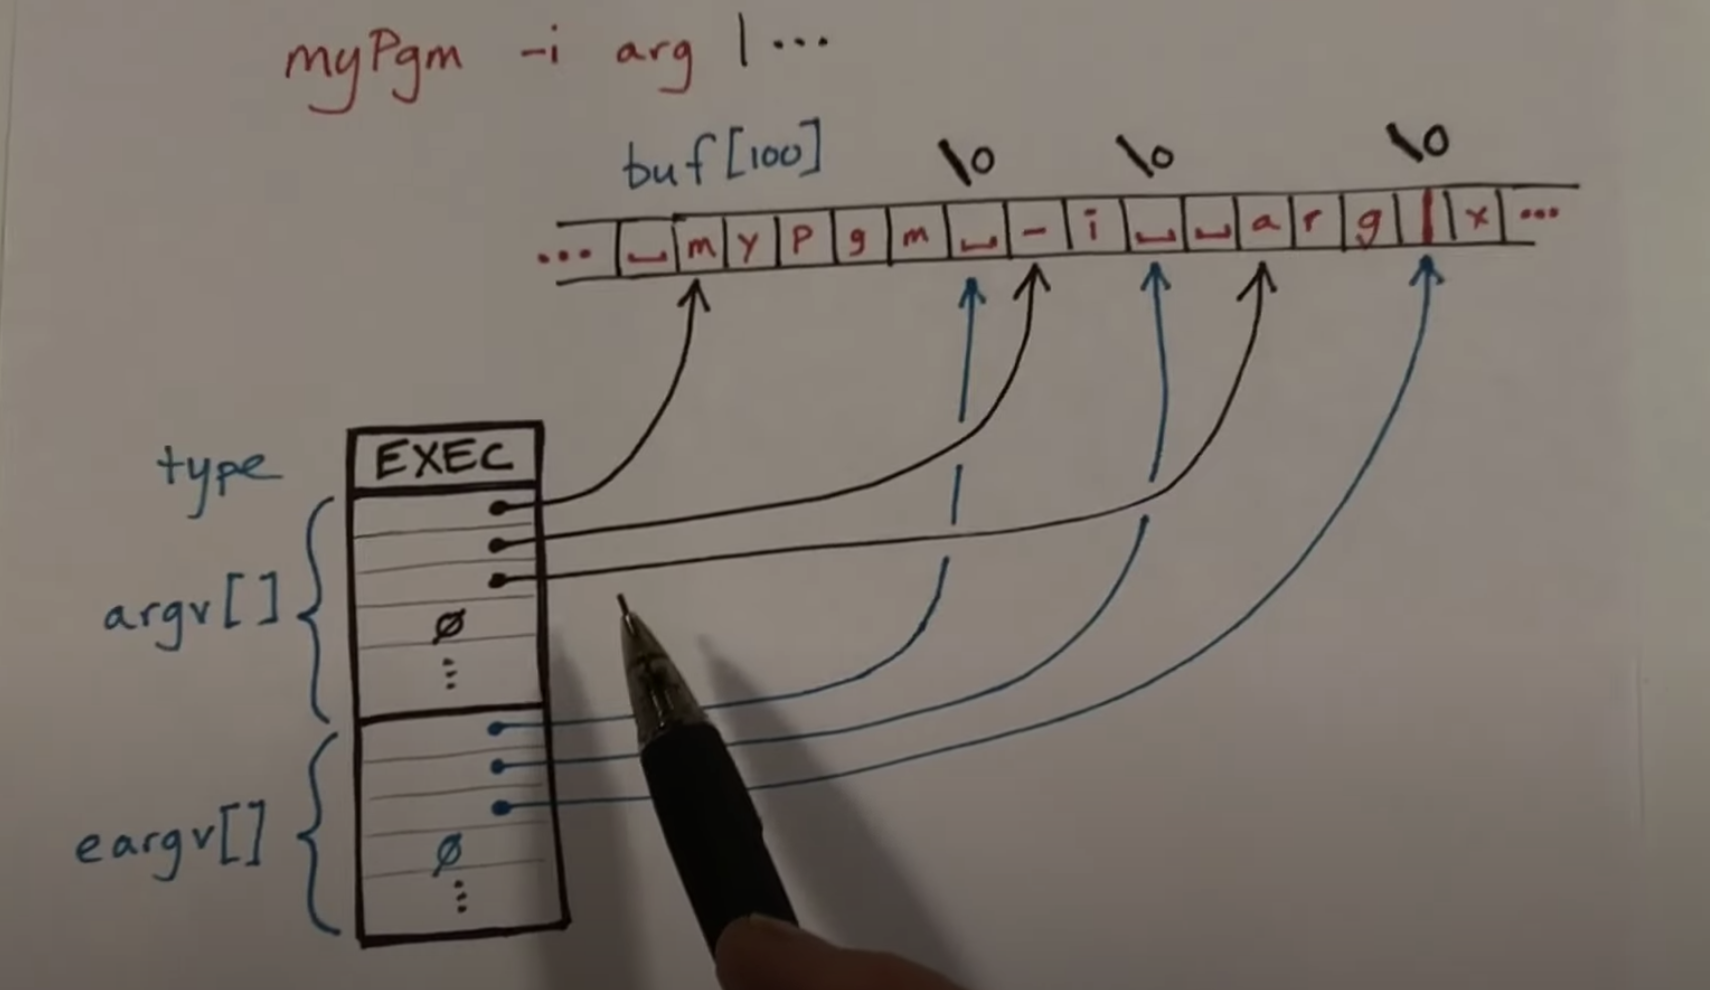 myPgm -i arg | ...
buf[100]
\0 \0 \0
... ␣ m y P g m ␣ - i ␣ ␣ a r g | x ...
type
EXEC
argv[]
ø
⋮
eargv[]
ø
⋮